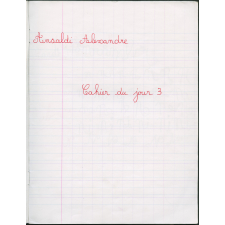 Ainsaldi Alexandre
Cahier du jour 3